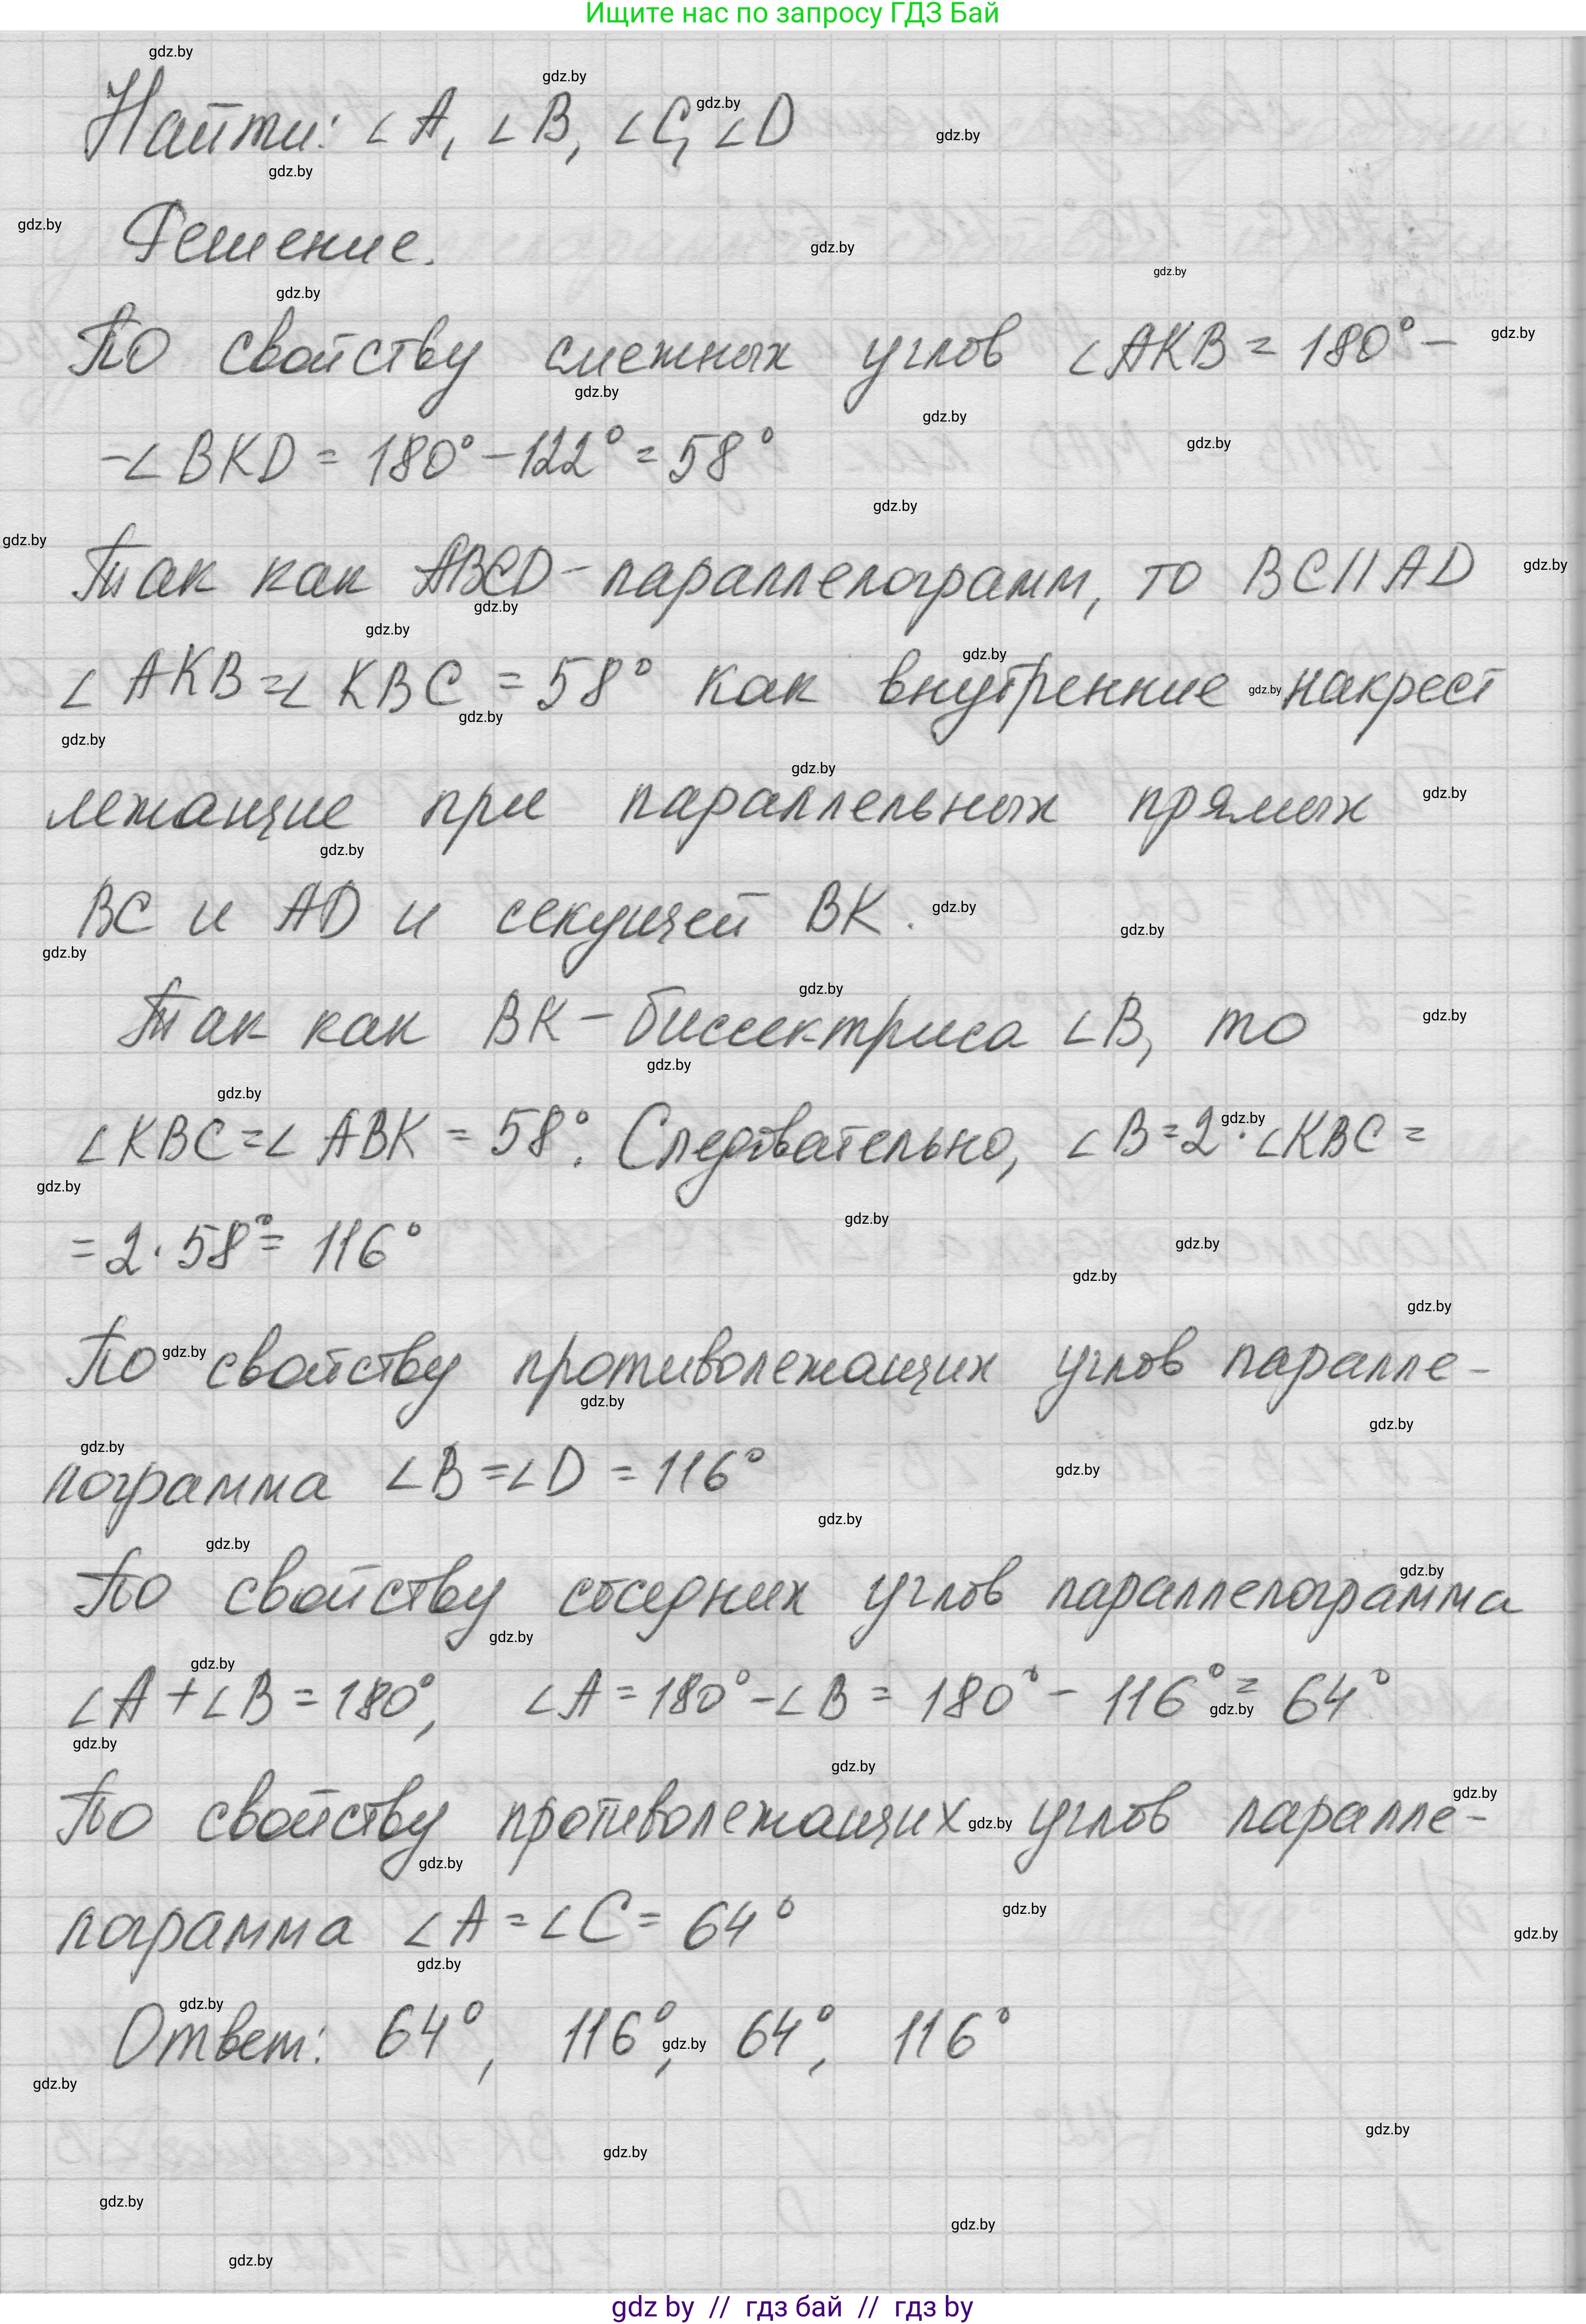 Ищите нас по запросу ГДЗ Бай
Найти: ∠A, ∠B, ∠C, ∠D
Решение.
По свойству смежных углов ∠AKB = 180° –
–∠BKD = 180° – 122° = 58°
Так как ABCD – параллелограмм, то BC || AD
∠AKB = ∠KBC = 58° как внутренние накрест
лежащие при параллельных прямых
BC и AD и секущей BK.
Так как BK – биссектриса ∠B, то
∠KBC = ∠ABK = 58°. Следовательно, ∠B = 2 · ∠KBC =
= 2 · 58° = 116°
По свойству противолежащих углов паралле-
лограмма ∠B = ∠D = 116°
По свойству соседних углов параллелограмма
∠A + ∠B = 180°, ∠A = 180° – ∠B = 180° – 116° = 64°
По свойству противолежащих углов паралле-
лограмма ∠A = ∠C = 64°
Ответ: 64°, 116°, 64°, 116°
gdz by // гдз бай // гдз by